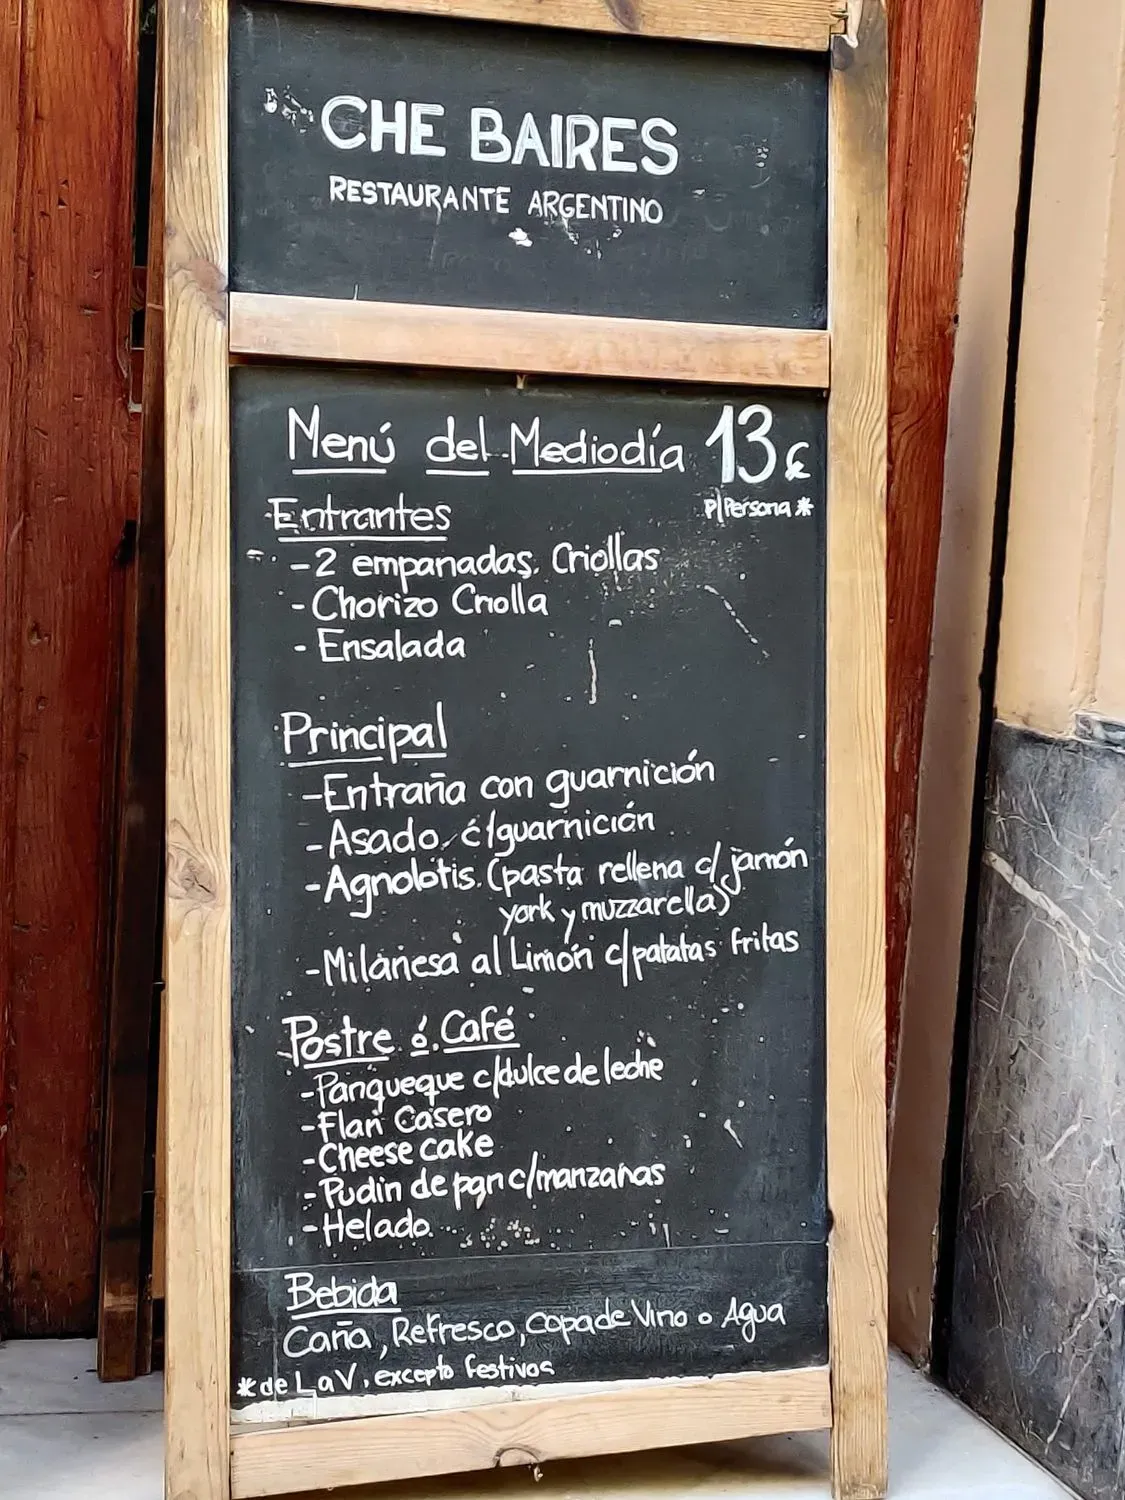 CHE BAIRES
RESTAURANTE ARGENTINO
Menú del Mediodía 13€
P/Persona *
Entrantes
-2 empanadas Criollas
- Chorizo Criolla
- Ensalada
Principal
-Entraña con guarnición
-Asado c/guarnición
-Agnolotis (pasta rellena c/jamón
york y muzzarella)
-Milanesa al Limón c/patatas fritas
Postre ó Café
-Panqueque c/dulce de leche
-Flan Casero
-Cheese cake
-Pudin de pan c/manzanas
-Helado.
Bebida
Caña, Refresco, copa de Vino o Agua
* de L a V, excepto festivos